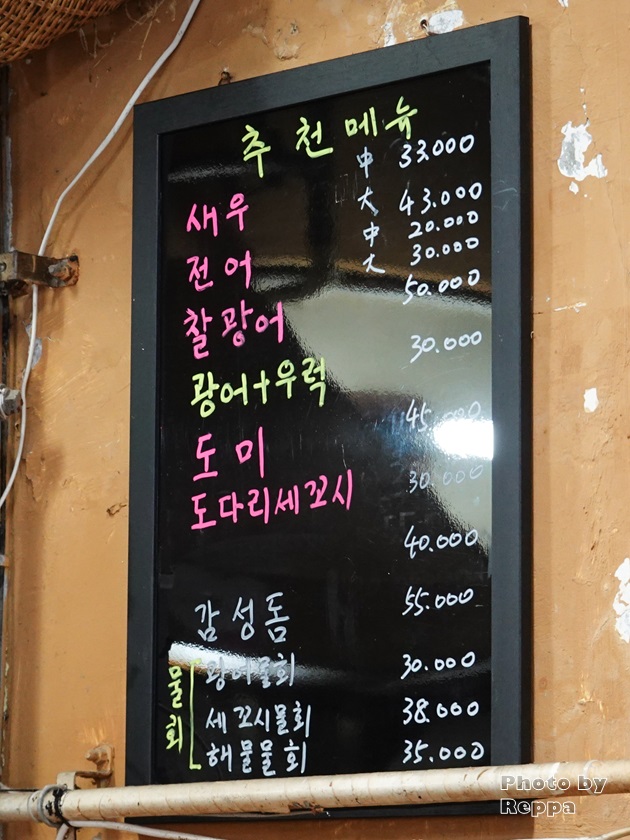 추천메뉴
中 33.000
새우 大 43.000
中 20.000
전어 大 30.000
50.000
찰광어
30.000
광어+우럭
45.000
도미
30.000
도다리세꼬시
40.000
감성돔 55.000
물회
광어물회 30.000
세꼬시물회 38.000
해물물회 35.000
Photo by
Reppa